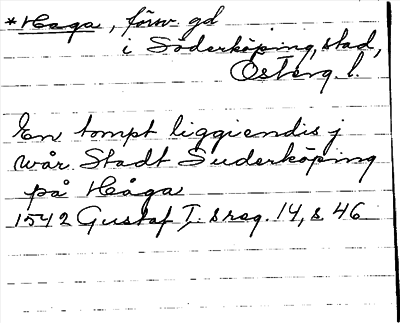 *Haga, förw gd
i Söderköping, stad,
Österg. l.
En tompt liggiendis j
wår Stadt Suderköping
på Håga
1542 Gustaf I:s reg. 14, s. 46